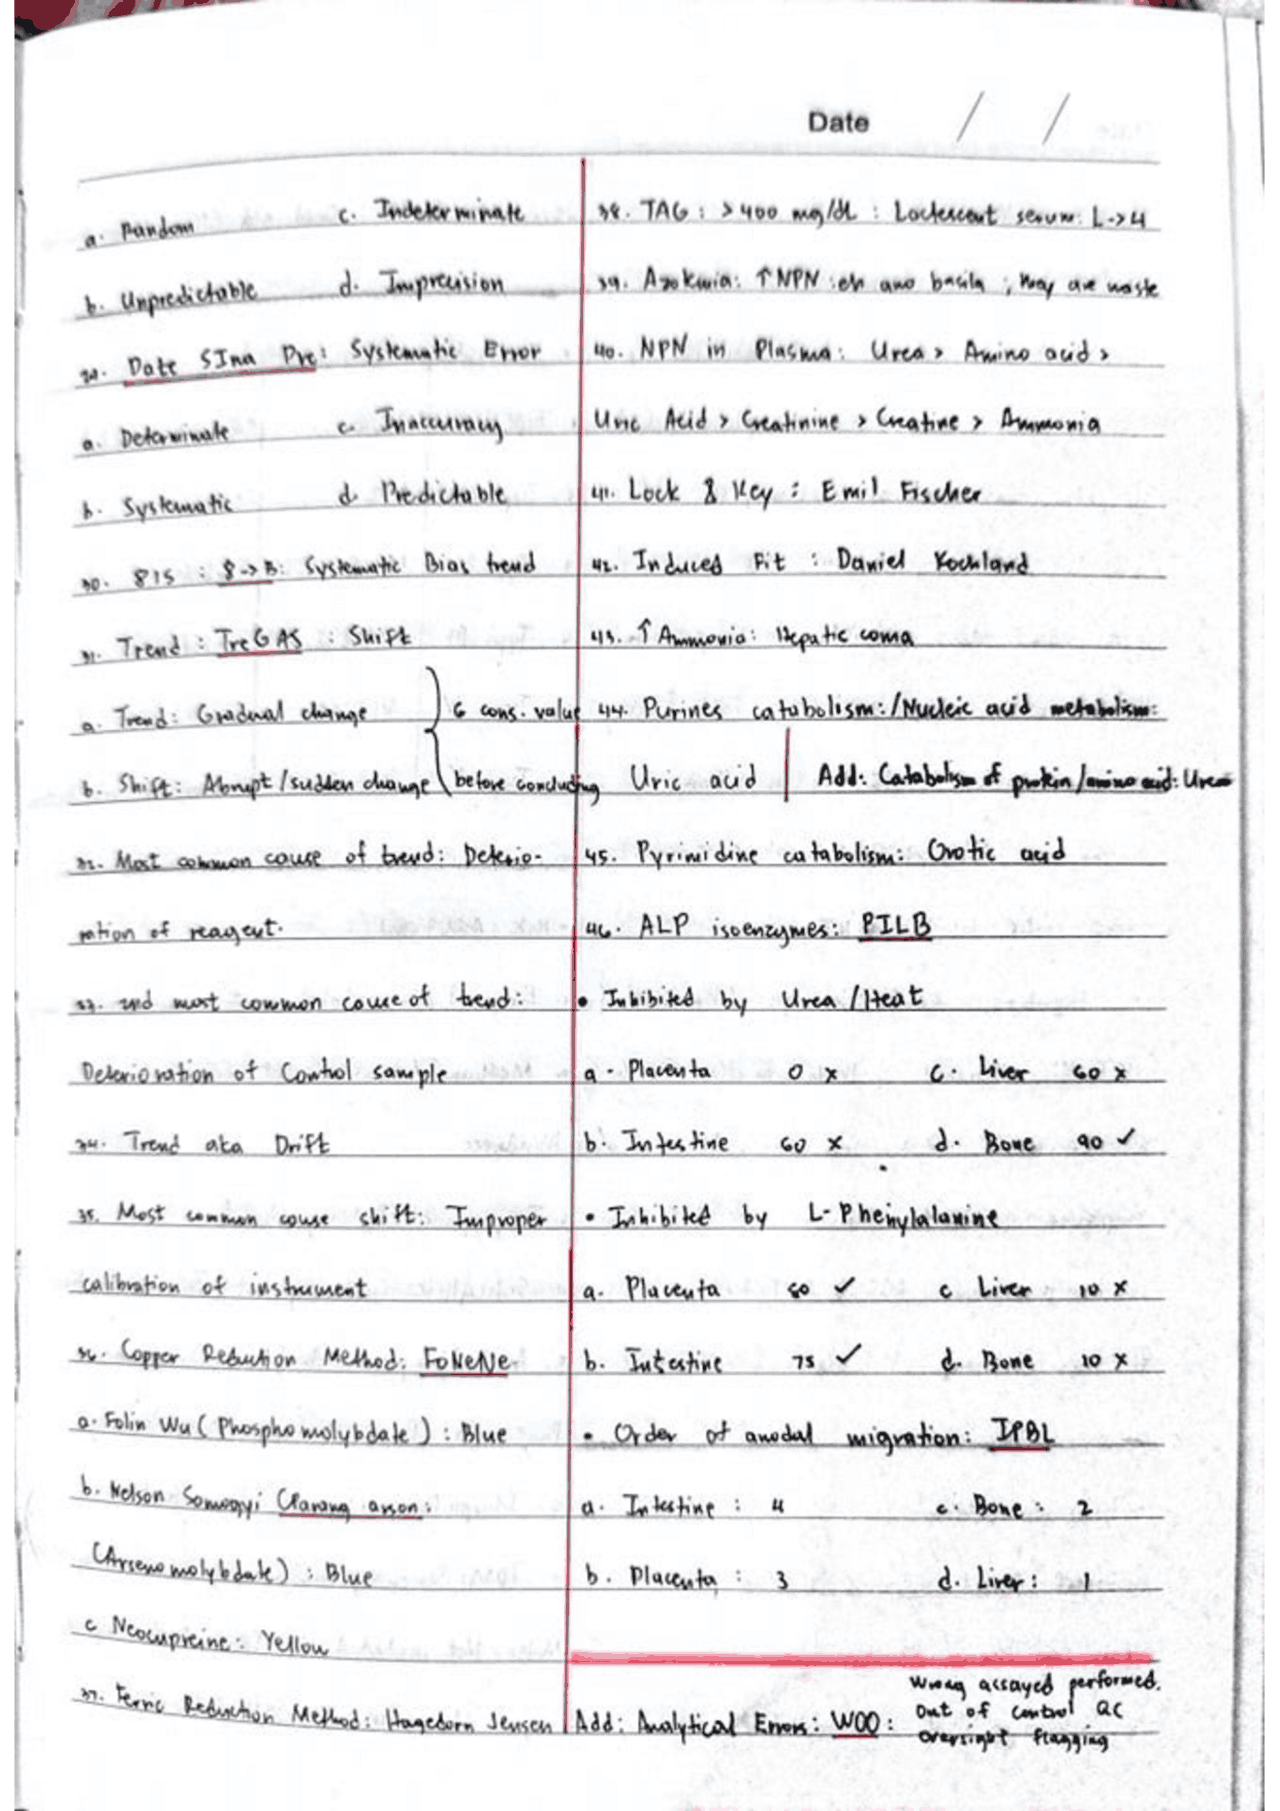 Date / /
a. Random c. Indeterminate
b. Unpredictable d. Imprecision
29. Date SIna Pre: Systematic Error
a. Determinate c. Inaccuracy
b. Systematic d. Predictable
30. 81s : 8->B: Systematic Bias trend
31. Trend : TreGAS : Shift
a. Trend: Gradual change
b. Shift: Abrupt/sudden change
6 cons. value
before concluding
32. Most common cause of trend: Deterio-
ration of reagent.
33. 2nd most common cause of trend:
Deterioration of Control sample
34. Trend aka Drift
35. Most common cause shift: Improper
calibration of instrument
36. Copper Reduction Method: FoNeNe
a. Folin Wu (Phosphomolybdate) : Blue
b. Nelson Somogyi (Parang arson:
(Arsenomolybdate) : Blue
c Neocupreine: Yellow
37. Ferric Reduction Method: Hagedorn Jensen
38. TAG : >400 mg/dL : Lactescent serum: L->4
39. : ↑NPN : ano ; they are waste
40. NPN in Plasma: Urea > Amino acid >
Uric Acid > Creatinine > Creatine > Ammonia
41. Lock & Key : Emil Fischer
42. Induced Fit : Daniel Kochland
43. ↑ Ammonia: Hepatic coma
44. Purines catabolism:/Nucleic acid metabolism:
Uric acid | Add: Catabolism of protein/amino acid: Urea
45. Pyrimidine catabolism: Orotic acid
46. ALP isoenzymes: PILB
• Inhibited by Urea/Heat
a. Placenta 0 x c. Liver 60 x
b. Intestine 60 x d. Bone 90 ✓
• Inhibited by L-Phenylalanine
a. Placenta 80 ✓ c Liver 10 x
b. Intestine 75 ✓ d. Bone 10 x
• Order of anodal migration: IPBL
a. Intestine : 4 c. Bone : 2
b. Placenta : 3 d. Liver : 1
Add: Analytical Errors: WOO :
Wrong assayed performed.
Out of control QC
oversight flagging